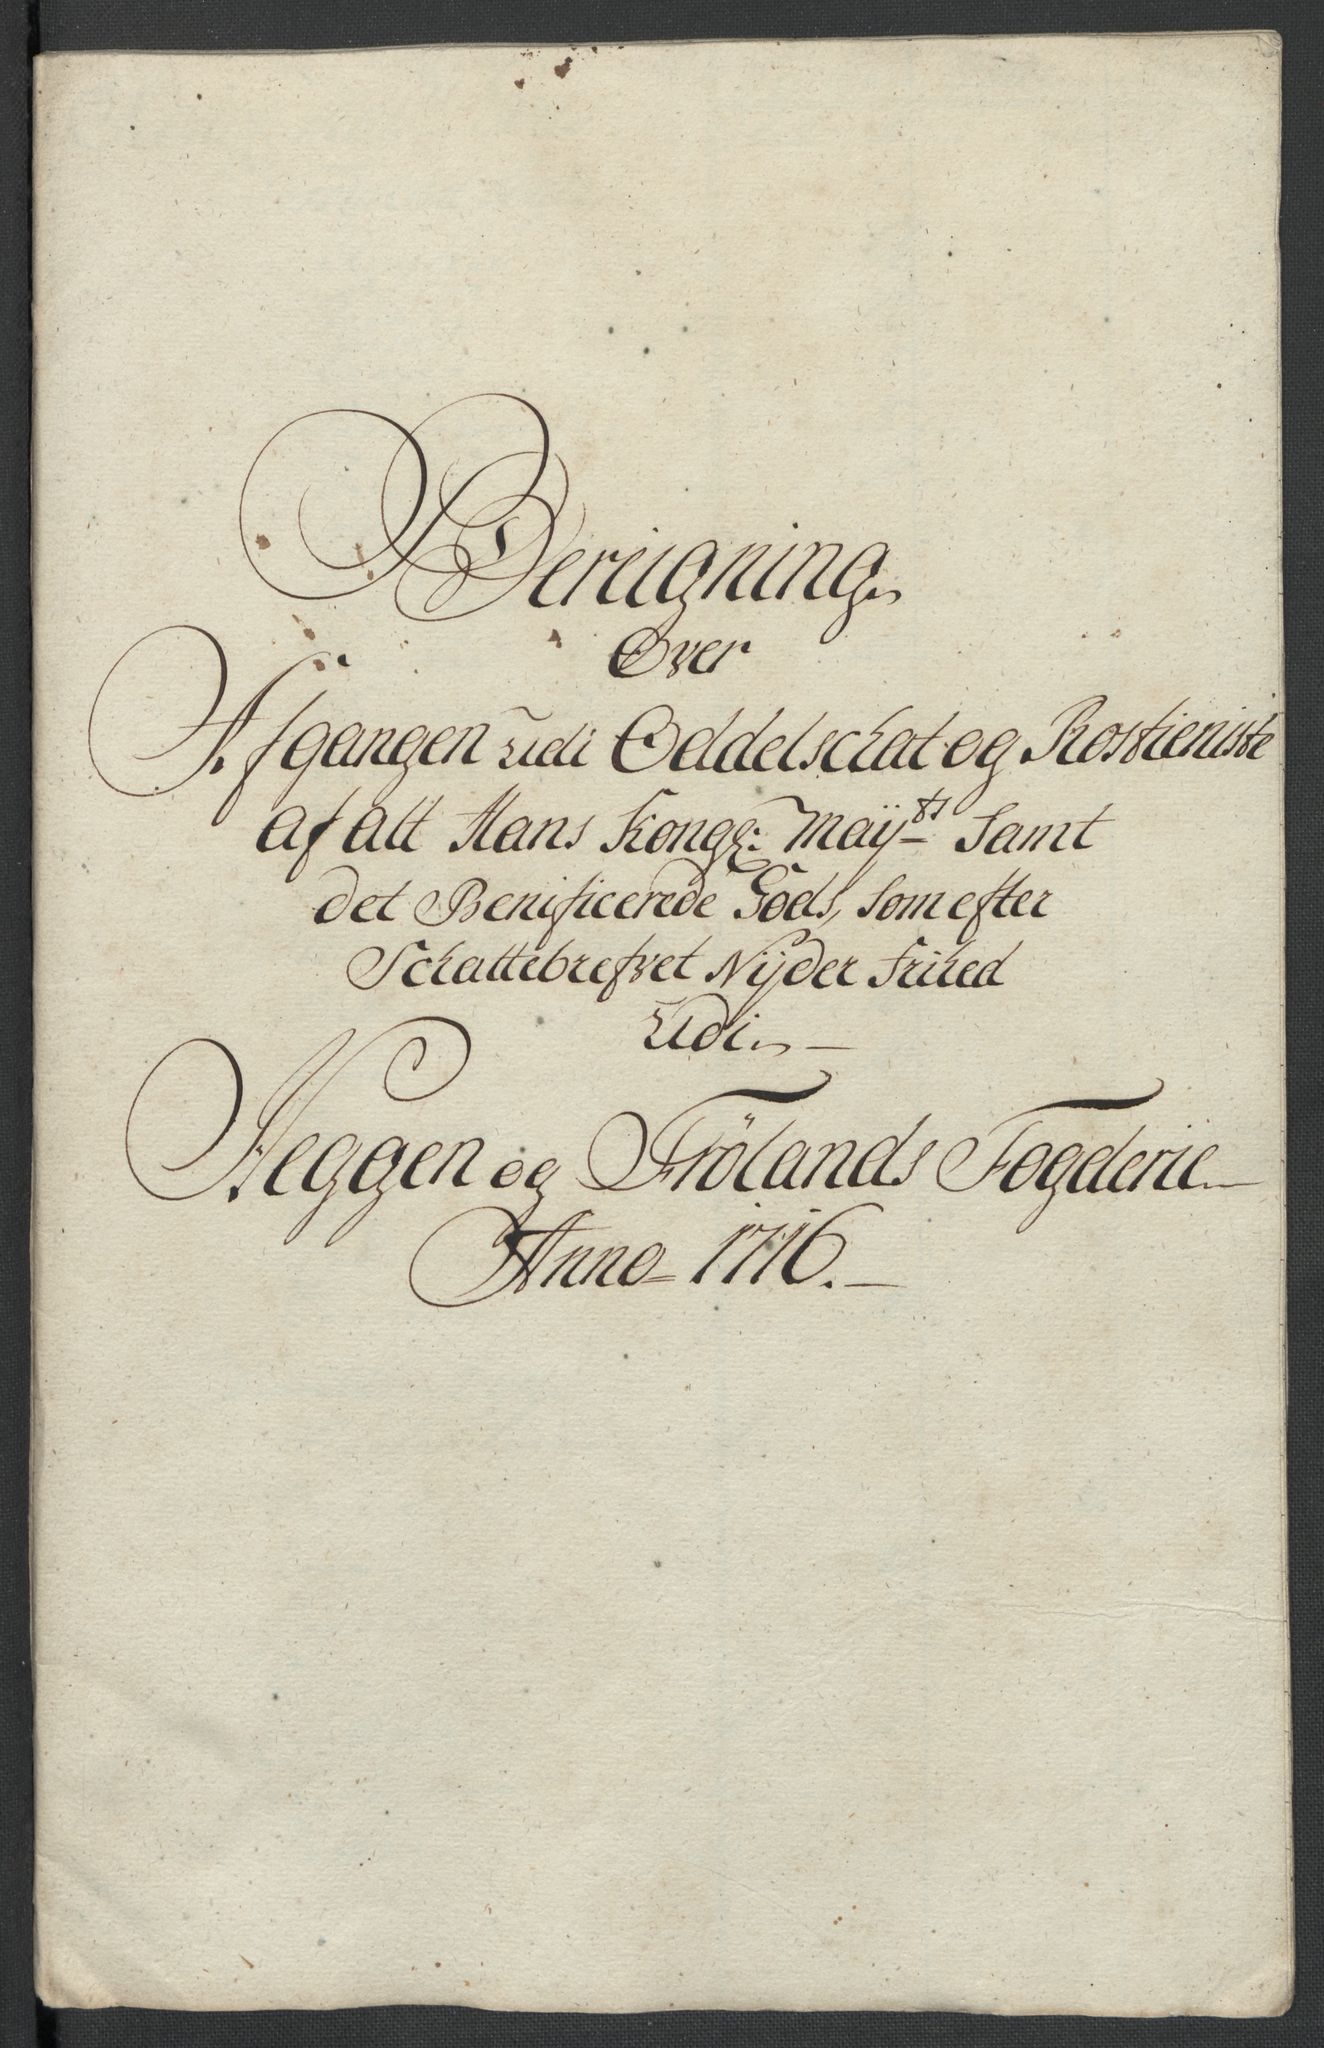 Bereigning
Over
Afgangen udi Oddelschat og Rostieniste
af alt Hans Kongl: Maÿ<sup>ts</sup> Samt
det Benificerede Gods, som efter
Schattebrefvet Nÿder frihed
Udi
Heggen og Frölands Fogderie
Anno 1716.